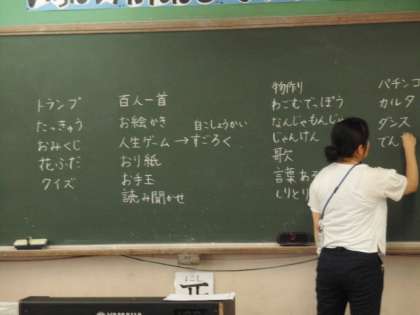 トランプ
たっきゅう
おみくじ
花ふだ
クイズ
百人一首
お絵かき
人生ゲーム→すごろく
自こしょうかい
おり紙
お手玉
読み聞かせ
物作り
わごむでっぽう
なんじゃもんじゃ
じゃんけん
歌
言葉あ
しりとり
パチンコ
カルタ
ダンス
でん
YAMAHA